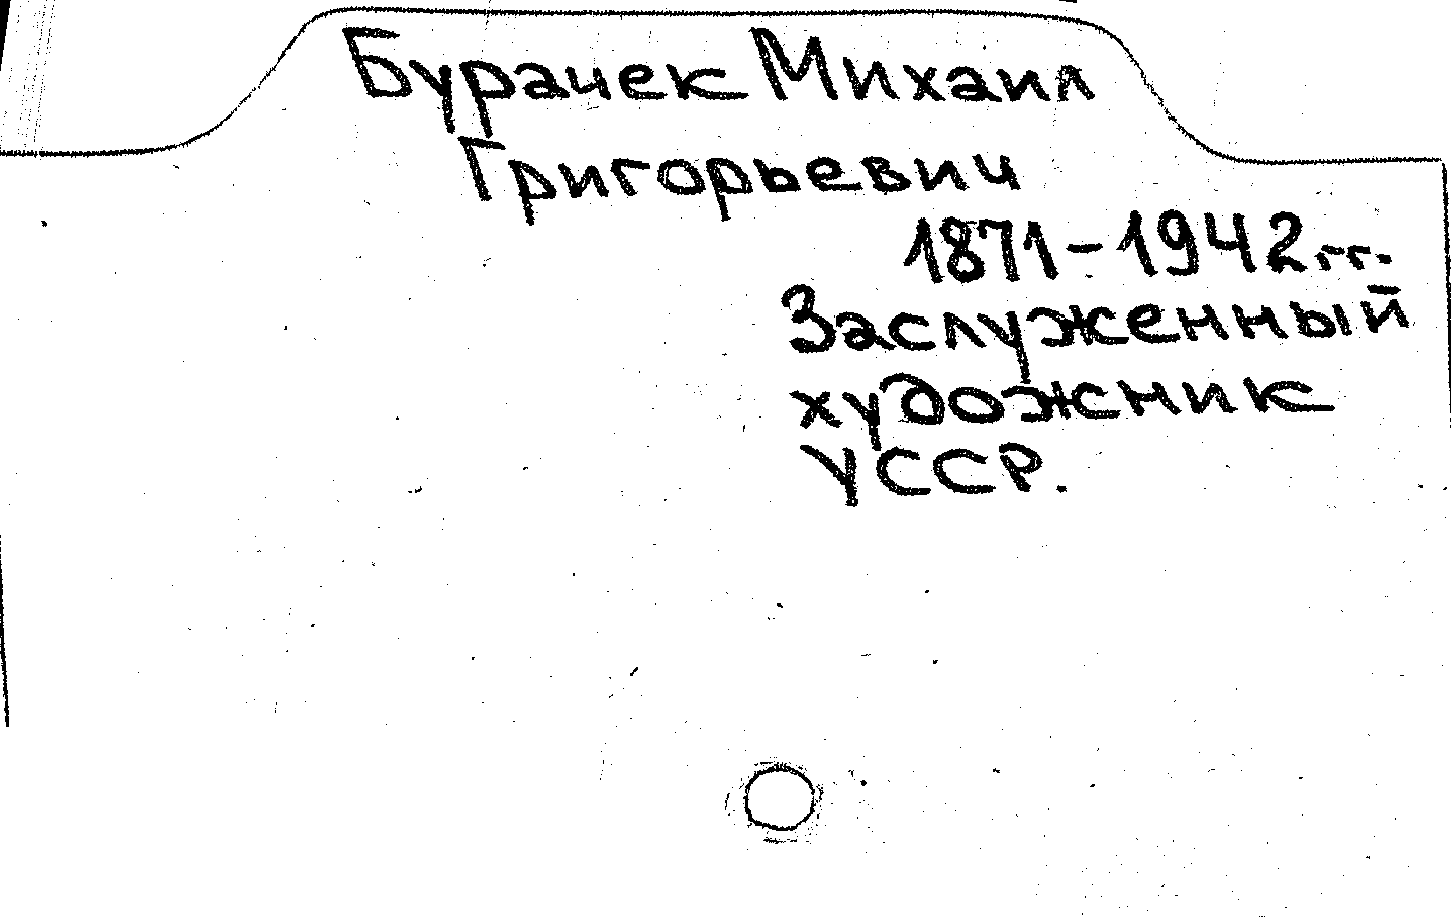 Бурачек Михаил
Григорьевич
1871-1942г.г.
Заслуженный
художник
УССР.